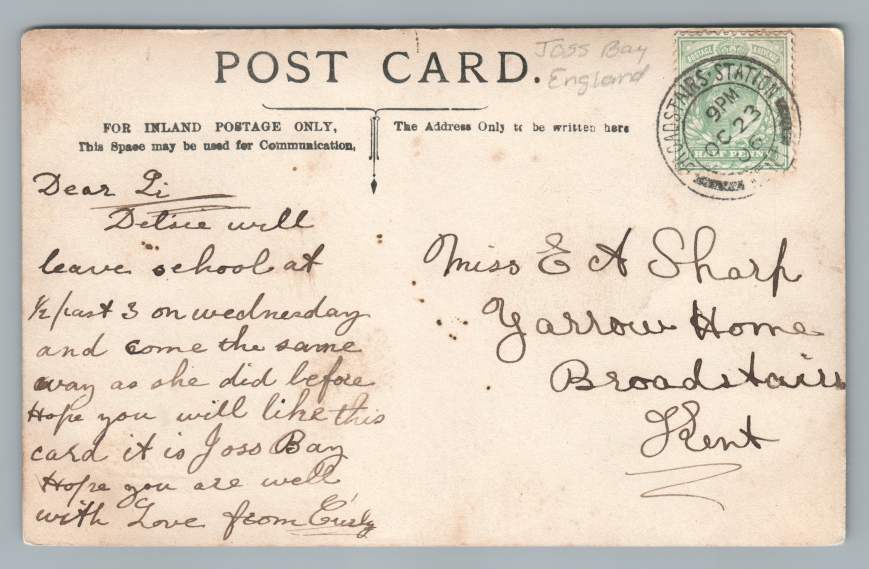 POST CARD.
Joss Bay
England
FOR INLAND POSTAGE ONLY,
This Space may be used for Communication,
The Address Only to be written here
BROADSTAIRS·STATION
9PM
OC 23
06
HALF PENNY
Dear Li
Delsie will
leave school at
1/2 past 3 on wednesday
and come the same
way as she did before
Hope you will like this
card it is Joss Bay
Hope you are well
with Love from
Miss E A Sharp
Yarrow Home
Broadstairs
Kent